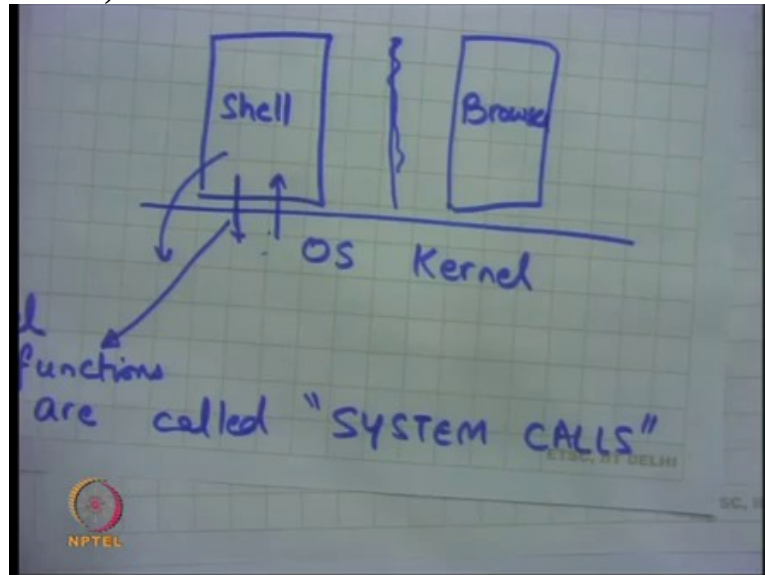 Shell
Browse
OS Kernel
functions
are called "SYSTEM CALLS"
ETSC, IIT DELHI
SC, I
NPTEL